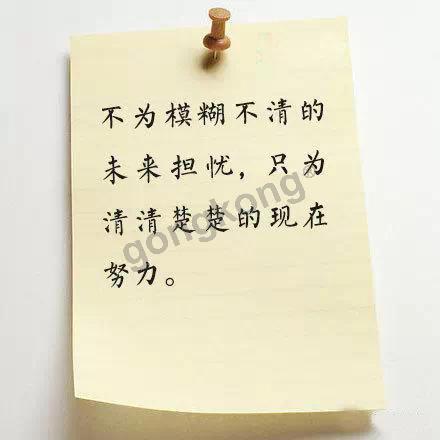 不为模糊不清的
未来担忧，只为
清清楚楚的现在
努力。
gongkong®